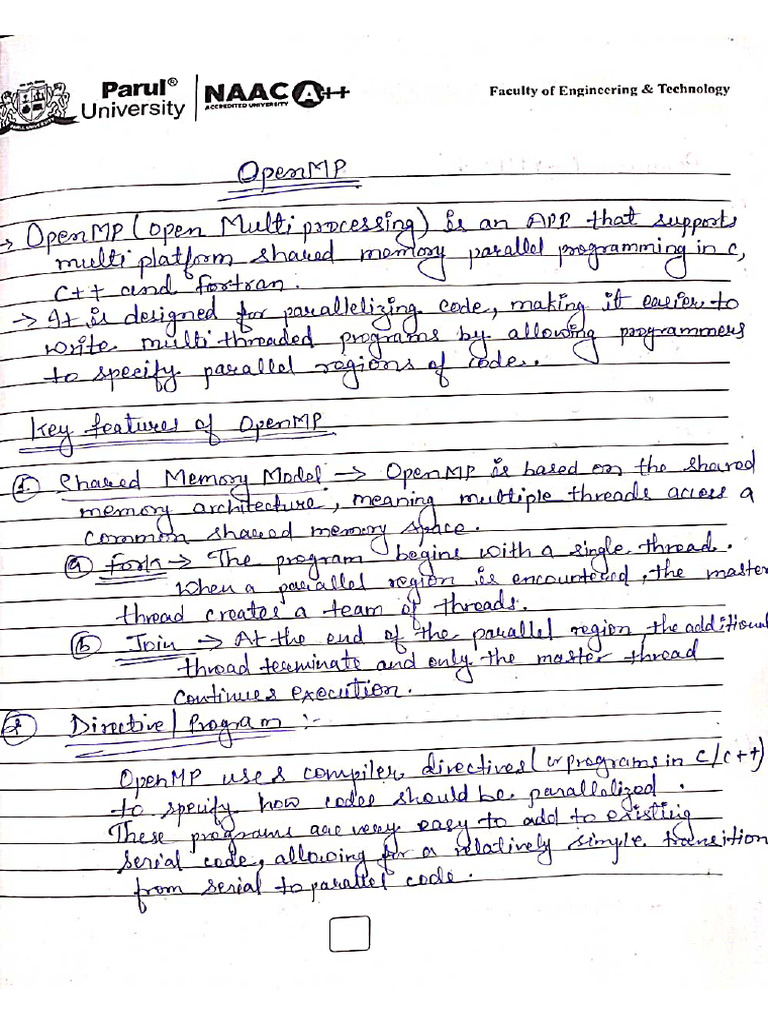 Parul® University
NAAC A++
ACCREDITED UNIVERSITY
Faculty of Engineering & Technology
OpenMP
→ OpenMP (open Multiprocessing) is an APP that supports
multi platform shared memory parallel programming in c,
c++ and fortran.
→ It is designed for parallelizing code, making it easier to
write multi threaded programs by allowing programmers
to specify parallel regions of code.
Key features of OpenMP
1. Shared Memory Model → OpenMP is based on the shared
memory architecture, meaning multiple threads access a
common shared memory space.
a) Fork → The program begins with a single thread.
When a parallel region is encountered, the master
thread creates a team of threads.
b) Join → At the end of the parallel region, the additional
thread terminate and only the master thread
continues execution.
2. Directive/Program :-
OpenMP uses compiler directives (or programs in c/c++)
to specify how codes should be parallelized.
These programs are very easy to add to existing
serial code, allowing for a relatively simple transition
from serial to parallel code.